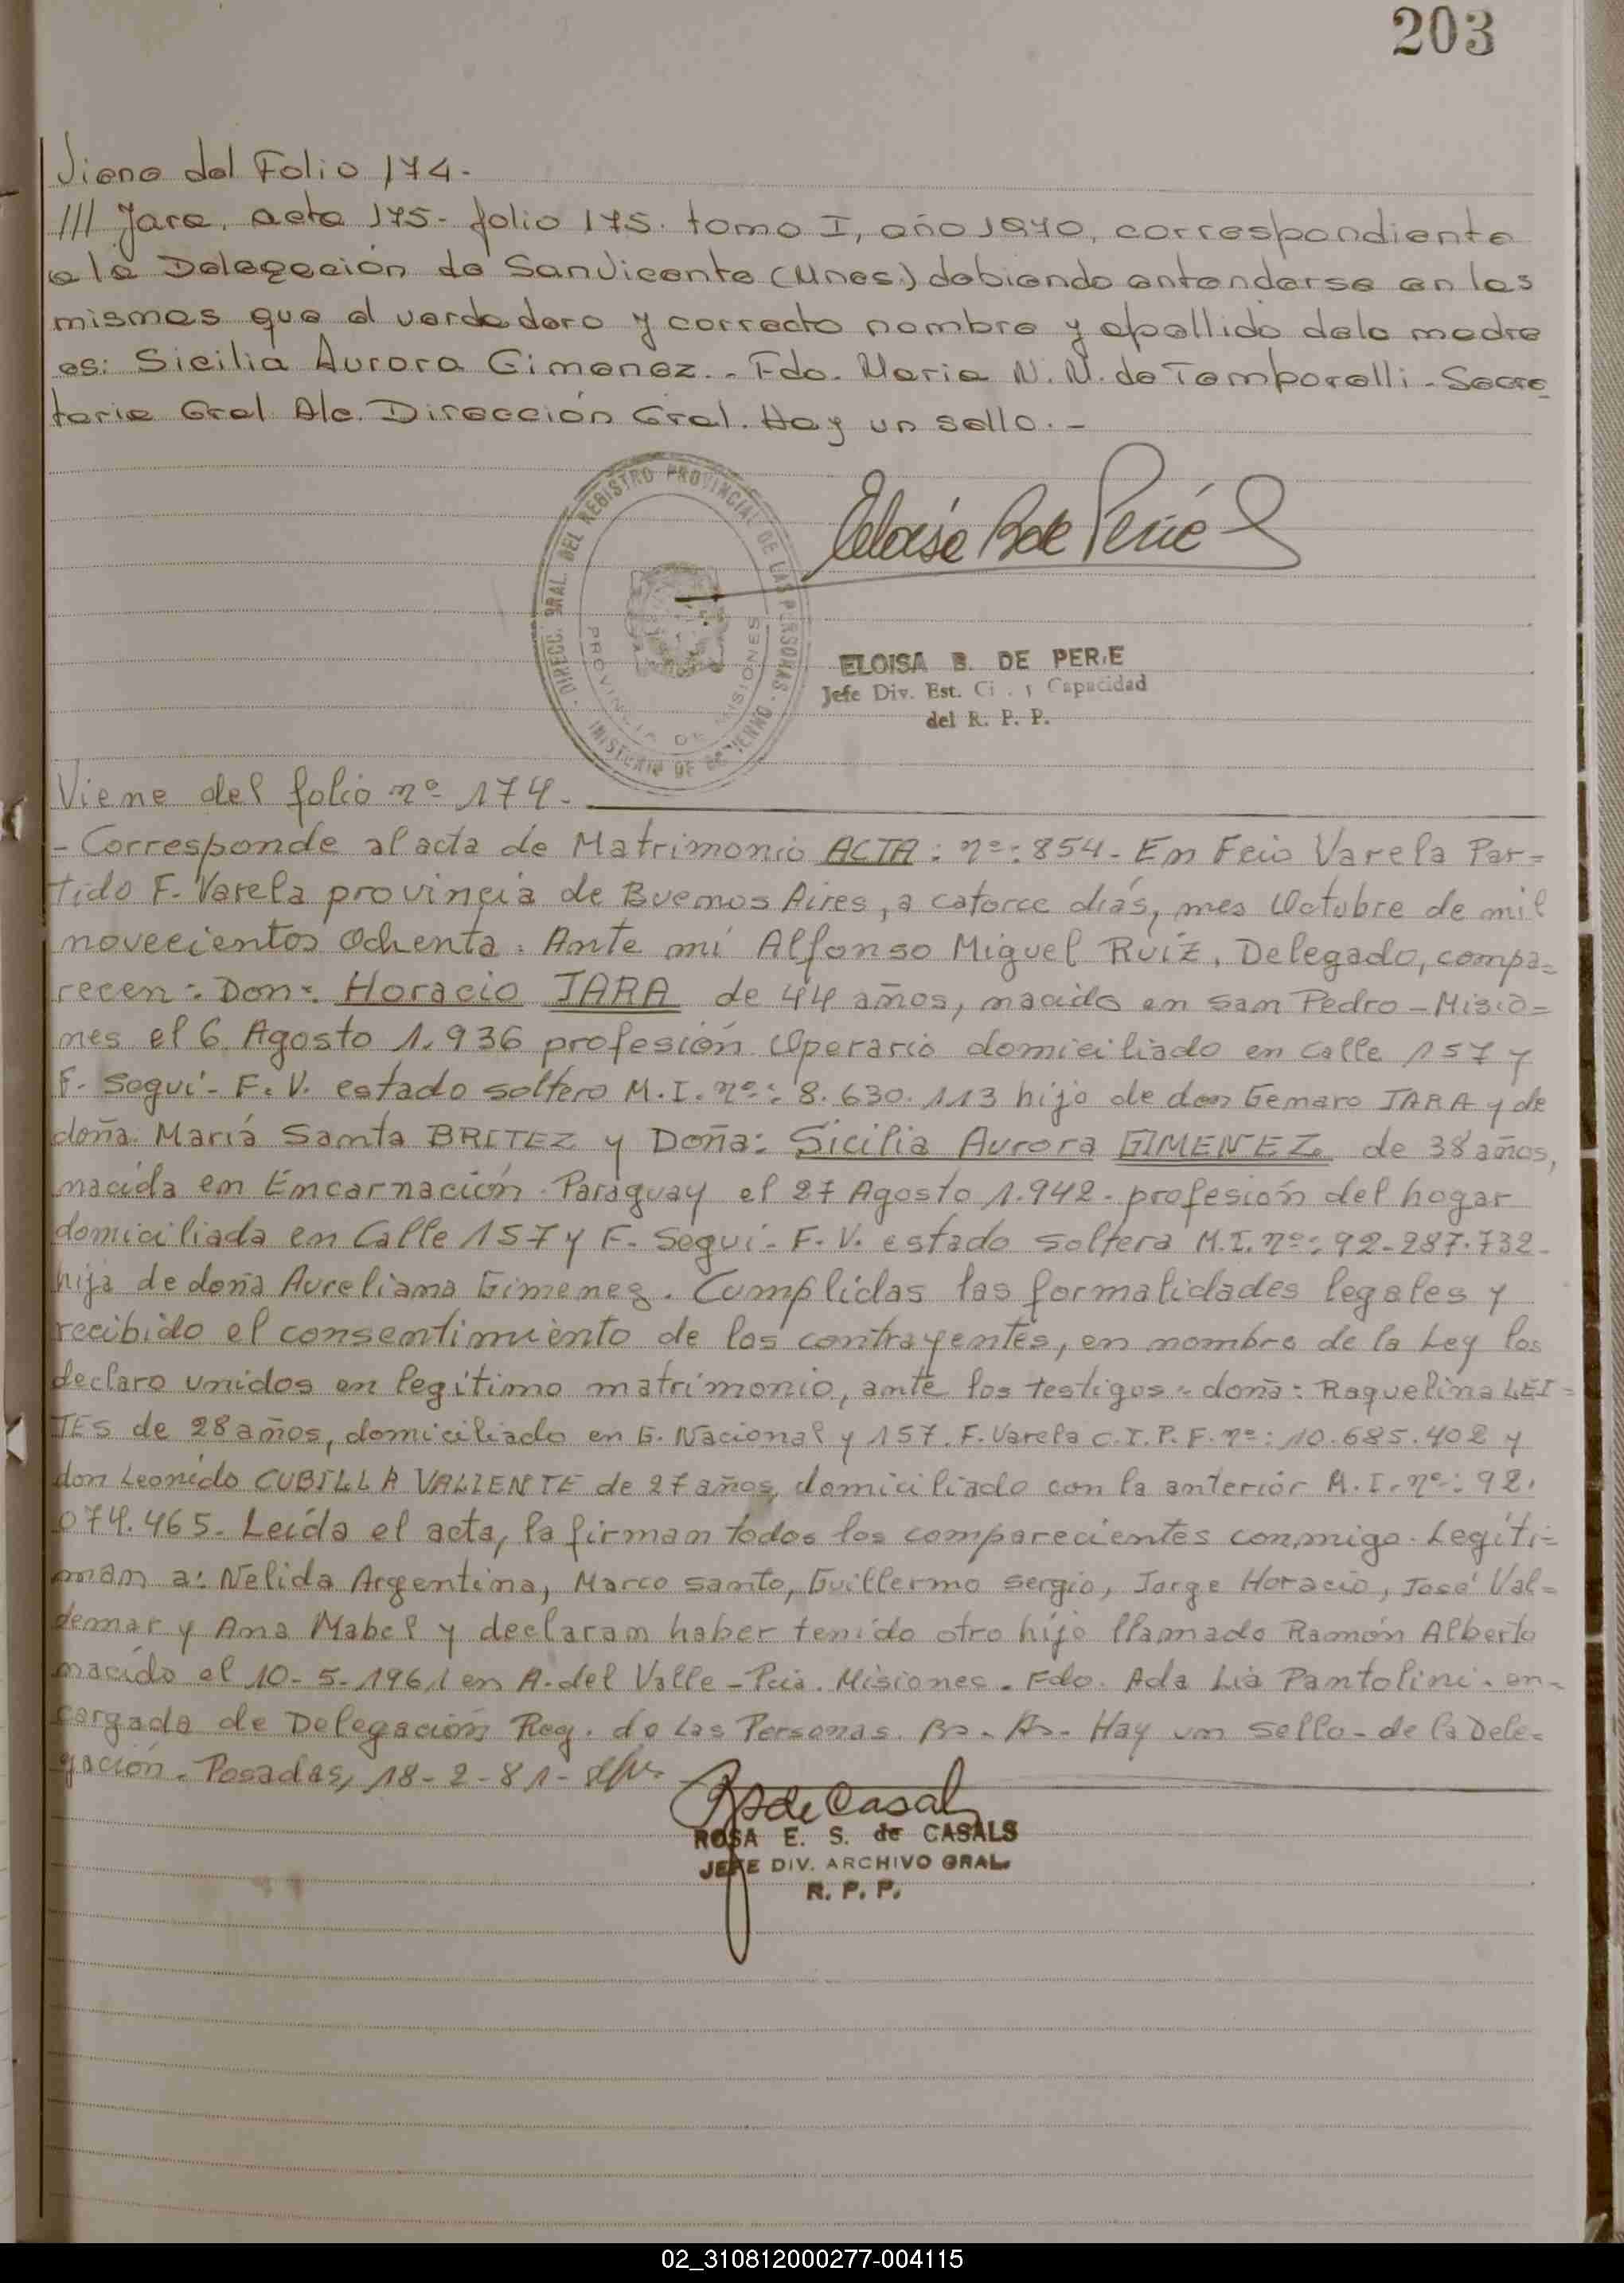 203
Viene del Folio 174.
/// Jara, acta 175- folio 175. tomo I, año 1970, correspondiente
a la Delegación de San Vicente (Mnes.) debiendo entenderse en las
mismas que el verdadero y correcto nombre y apellido de la madre
es: Sicilia Aurora Gimenez.- Fdo. Maria N. N. de Temporelli - Secre-
taria Gral A/c. Dirección Gral. Hay un sello.-
DIRECC. GRAL. DEL REGISTRO PROVINCIAL DE LAS PERSONAS
PROVINCIA DE MISIONES
MINISTERIO DE GOBIERNO
Eloisa B de Perié
ELOISA B. DE PERIE
Jefe Div. Est. Ci . y Capacidad
del R. P. P.
Viene del folio nº 174.
- Corresponde al acta de Matrimonio ACTA: nº: 854- En Fcio Varela Par=
tido F. Varela provincia de Buenos Aires, a catorce días, mes Octubre de mil
novecientos Ochenta. Ante mí Alfonso Miguel Ruíz, Delegado, compa=
recen: Don: Horacio JARA de 44 años, nacido en San Pedro - Misio=
nes el 6 Agosto 1.936 profesión Operario domiciliado en calle 157 y
F. Seguí- F. V. estado soltero M.I. nº: 8.630.113 hijo de don Genaro JARA y de
doña María Santa BRITEZ y Doña: Sicilia Aurora GIMENEZ de 38 años,
nacida en Encarnación- Paraguay el 27 Agosto 1.942- profesión del hogar
domiciliada en Calle 157 y F. Seguí- F. V. estado soltera M.I. nº: 92-287.732-
hija de doña Aureliana Gimenez. Cumplidas las formalidades legales y
recibido el consentimiento de los contrayentes, en nombre de la Ley los
declaro unidos en legítimo matrimonio, ante los testigos- doña: Raquelina LEI=
TES de 28 años, domiciliado en G. Nacional y 157. F. Varela C.I.P.F. nº: 10.685.402 y
don Leonido CUBILLA VALIENTE de 27 años, domiciliado con la anterior M.I. nº: 92.
074.465- Leída el acta, la firman todos los comparecientes conmigo- Legiti=
man a: Nelida Argentina, Marco Santo, Guillermo Sergio, Jorge Horacio, José Val=
demar y Ana Mabel y declaran haber tenido otro hijo llamado Ramón Alberto
nacido el 10-5-1961 en A. del Valle - Pcia. Misiones. Fdo. Ada Lía Pantolini- en-
cargada de Delegación Reg. de Las Personas. Bs. As- Hay un sello- de la Dele=
gación. Posadas, 18-2-81-
R S de Casals
ROSA E. S. de CASALS
JEFE DIV. ARCHIVO GRAL.
R. P. P.
02_310812000277-004115